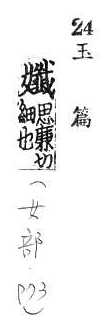 24
玉篇
孅思廉切
細也
(女部·P73)